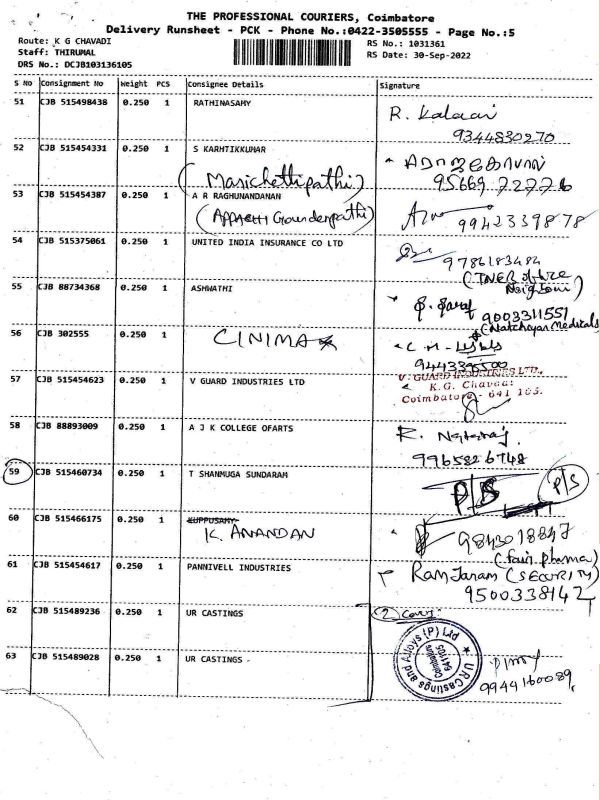 THE PROFESSIONAL COURIERS, Coimbatore
Delivery Runsheet - PCK - Phone No.:0422-3505555 - Page No.:5
Route: K G CHAVADI
RS No.: 1031361
Staff: THIRUMAL
RS Date: 30-Sep-2022
DRS No.: DCJB103136105
S No Consignment No Weight PCS Consignee Details Signature
51 CJB 515498438 0.250 1 RATHINASAMY R. Kalaai
9344830270
52 CJB 515454331 0.250 1 S KARHTIKKUMAR
(Marichettipathi) 95669 72776
53 CJB 515454387 0.250 1 A R RAGHUNANDANAN
(APPACHI Gounderpathi) 9942339878
54 CJB 515375061 0.250 1 UNITED INDIA INSURANCE CO LTD
9786183484
(TNEB office
55 CJB 88734368 0.250 1 ASHWATHI
9003311551
(Natchayar Medicals)
56 CJB 302555 0.250 1 CINIMA
57 CJB 515454623 0.250 1 V GUARD INDUSTRIES LTD V-GUARD INDUSTRIES LTD.,
K.G. Chavadi
Coimbatore - 641 105.
58 CJB 88893009 0.250 1 A J K COLLEGE OFARTS R. Nataraj
9965826748
59 CJB 515460734 0.250 1 T SHANMUGA SUNDARAM P/S P/S
60 CJB 515466175 0.250 1 KUPPUSAMY
K. ANANDAN 9843018847
(fair pharma)
61 CJB 515454617 0.250 1 PANNIVELL INDUSTRIES Ram Janam (SECURITY)
9500338142
62 CJB 515489236 0.250 1 UR CASTINGS (2) Cover
U.R.Castings and Alloys (P) Ltd
Coimbatore
641105
63 CJB 515489028 0.250 1 UR CASTINGS
9944160089